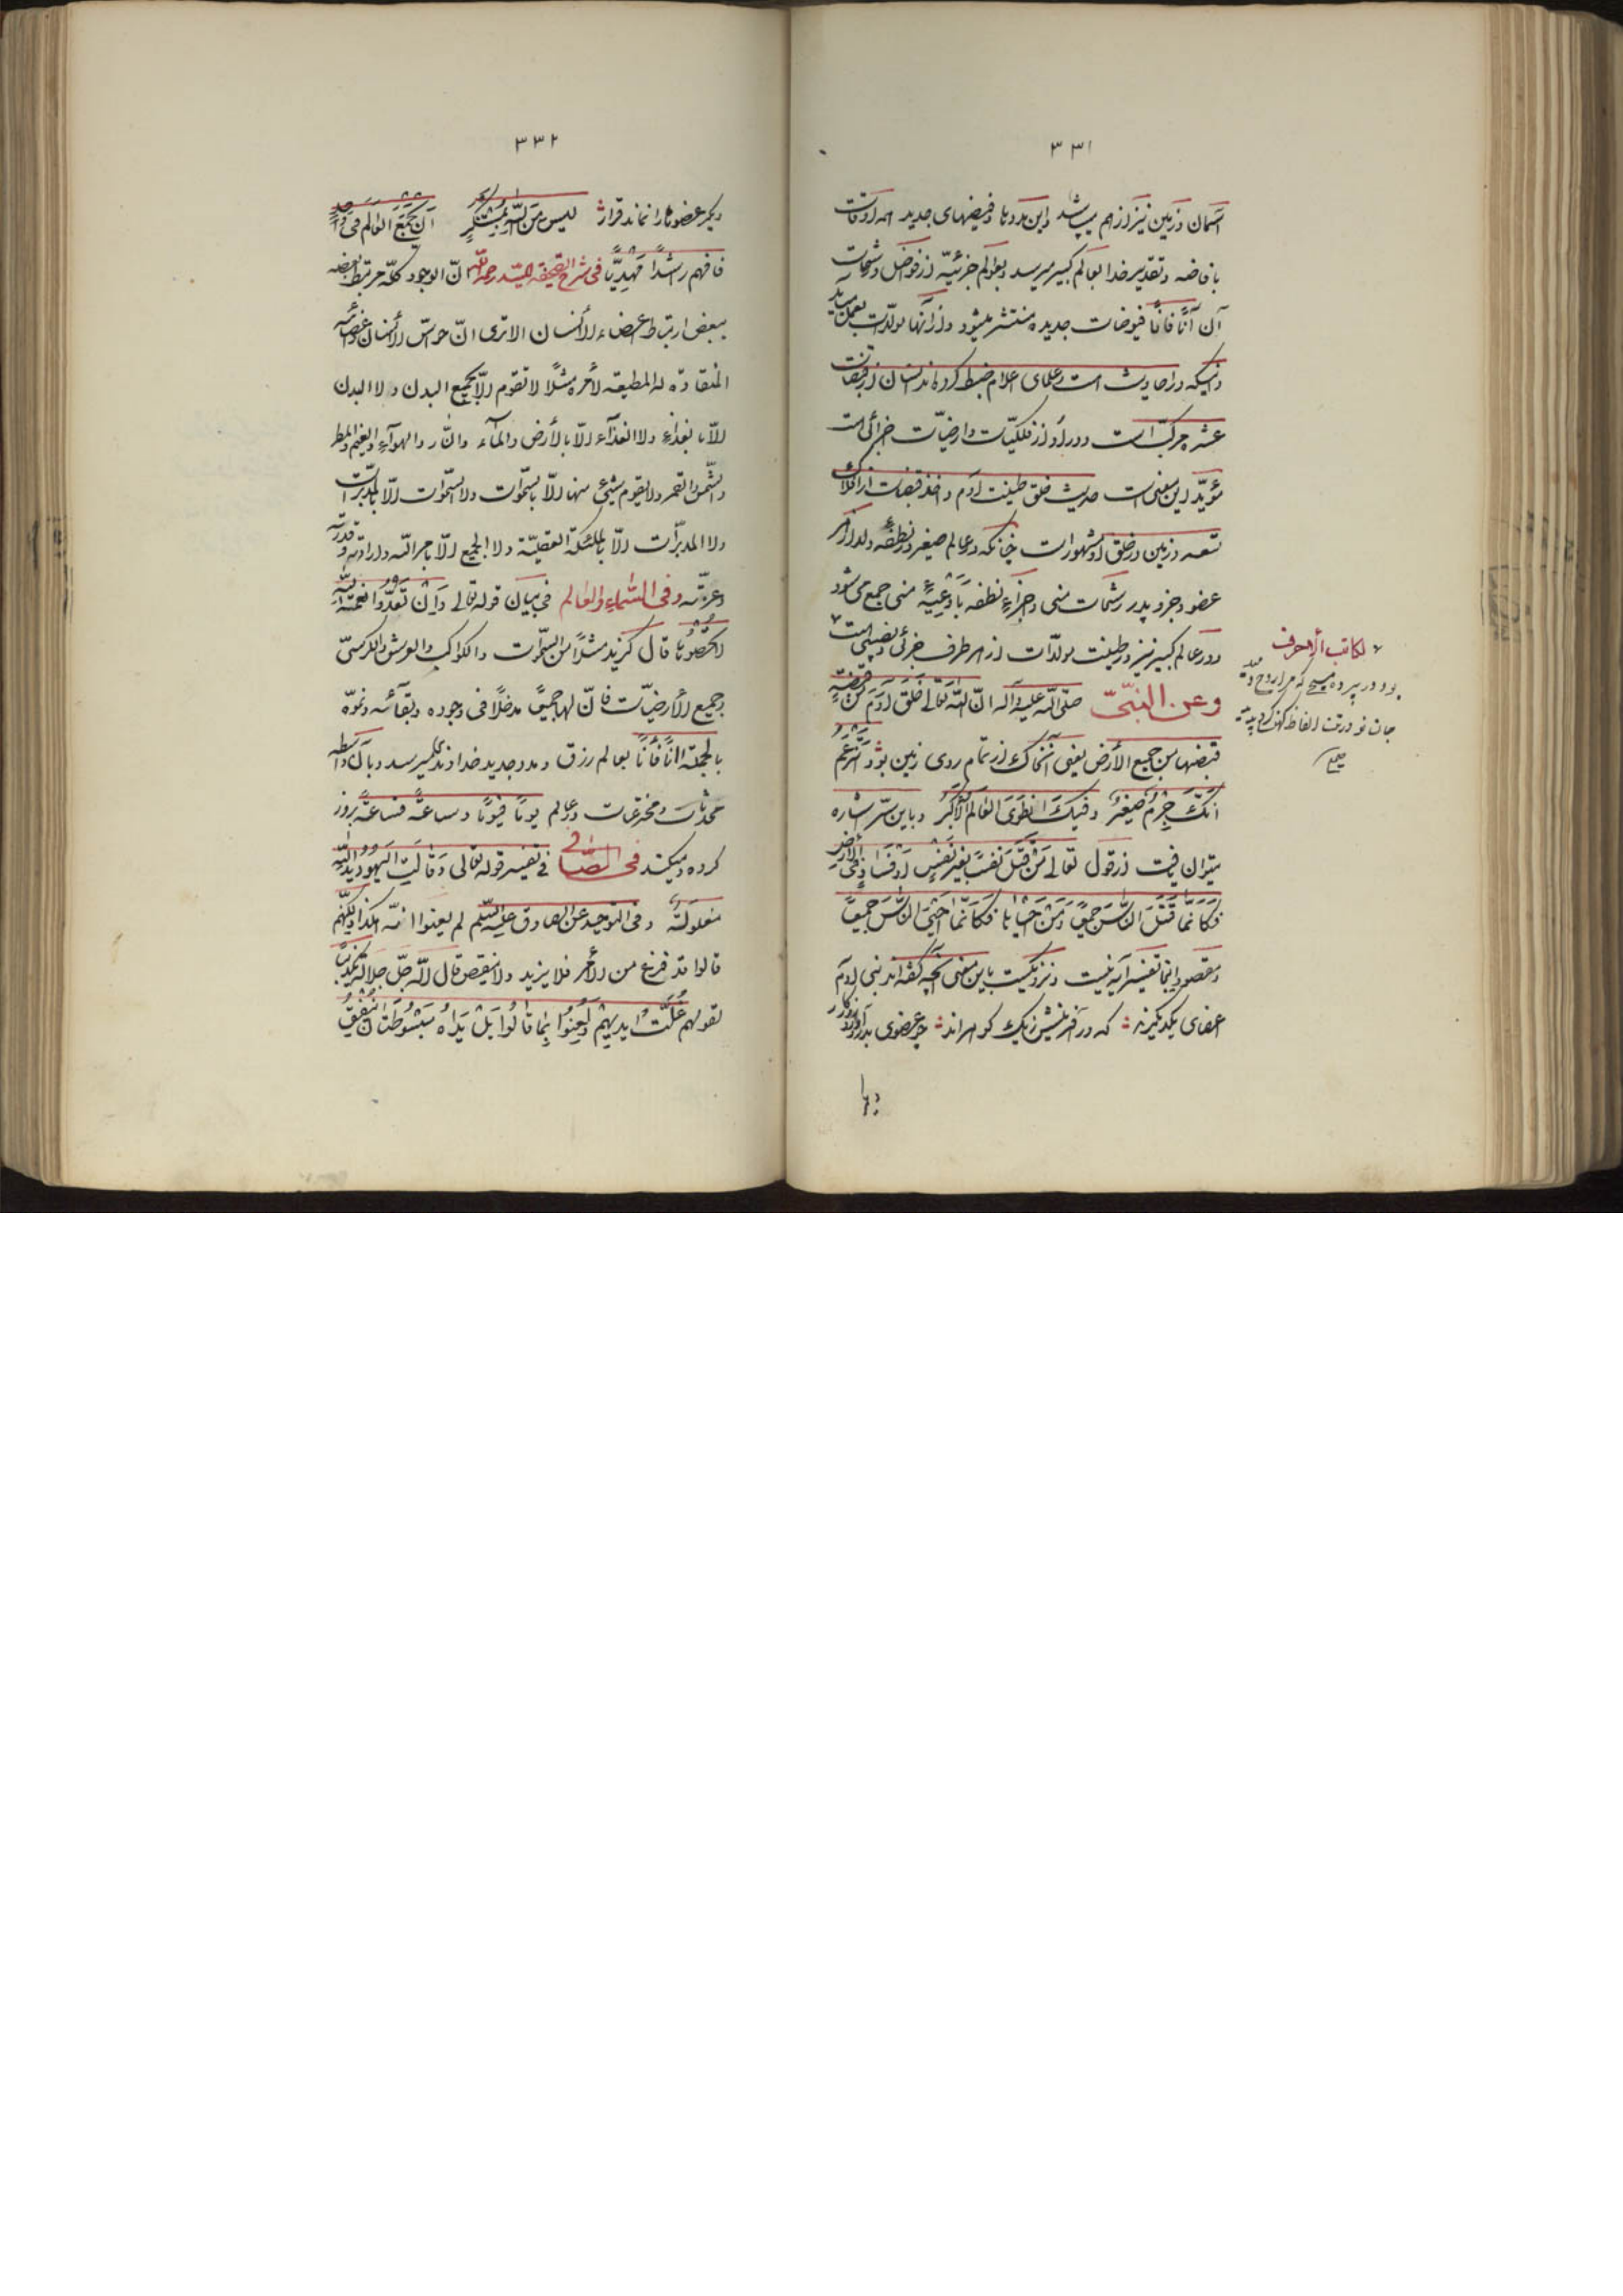 ۳۳۱
آسمان و زمین نیز از هم میپاشد و این مددها و فیضهای جدید همه اوقات
بافاضه و تقدیر خدا بعالم کبیر میرسد و بعوالم جزئیّه از فواضل و رشحات
آن آنًا فانًا فیوضات جدیده منتشر میشود و از آنها مولّدات بعمل میآید
و اینکه در احادیث است و علمای اعلام ضبط کرده‌اند انسان از قبضات
عشره مرکّب است و در او از فلکیّات و ارضیّات جزائی است
مؤیّد این معنی است حدیث خلق طینت آدم و اخذ قبضات از افلاک
تسعه و زمین در خلق او مشهور است چنانکه در عالم صغیر در نطفهٔ ولد از هر
عضو و جزو پدر رشحات منی و اجزاء نطفه باوعیهٔ منی جمع می شود
و در عالم کبیر نیز در طینت مولّدات از هر طرف جزئی و نصیبی است
وعن النبیّ صلّی الله علیه و آله انّ الله تعالی خلق آدم من قبضةٍ
قبضها من جمیع الأرض یعنی آنخاک از تمام روی زمین بود
انّک جرم صغیر و فیک انطوی العالم الأکبر و باین سرّ اشاره
میتوان یافت از قول تعالی مَن قتل نفسًا بغیر نفس او فساد فی الارض
فکانّما قتل الناس جمیعًا و مَن احیاها فکانّما احیی الناس جمیعًا
و مقصود اینجا تفسیر آیه نیست و نزدیکست باین معنی آنچه گفته‌اند بنی آدم
اعضای یکدیگرند که در آفرینش ز یک گوهراند چو عضوی بدرد آورد روزگار
دیگر
لکاتب الأحرف
بود در پرده مسیح که مرا روح دمید
جان نو در تن الفاظ کهن گردید
۳۳۲
دیگر عضوها را نماند قرار لیس من الله بمستنکر أن یجمع العالم فی واحد
فافهم راشدًا مهدیًّا فی شرح الصحیفه للسّید رحمه الله انّ الوجود کلّه مرتبط بعضه
ببعض ارتباط اعضاء الأنسان الا تری انّ حواسّ الأنسان و اعضائه
المنقادة له المطیعه لأمره مثلًا لا تقوم الّا بجمیع البدن ولا البدن
الّا بالغذاء ولا الغذآء الّا بالأرض والمآء والنّار والهوآء والغیم والمطر
والشّمس والقمر ولا یقوم شیئ منها الّا بالسّموات ولا السّموات الّا بالمدبّرات
ولا المدبّرات الّا بالملئکة العقلیّة ولا الجمیع الّا بامر الله وارادته وقدرته
وعزّته وفی السّماء والعالم فی بیان قوله تعالی وان تعدّوا نعمة الله
لا تحصوها قال کزید مثلًا من السّموات والکواکب والعرش والکرسیّ
وجمیع الأرضیّات فانّ لها جمیعًا مدخلًا فی وجوده وبقآئه ونموّه
بالجمله آنًا فآنًا بعالم رزق و مدد جدید خداوندی میرسد و بآن واسطه
محدثات و مخترعات در عالم یومًا فیومًا و ساعةً فساعةً بروز
کرده و میکند فی الصّافی فی تفسیر قوله تعالی وقالت الیهود ید الله
مغلولة وفی التوحید عن الصادق علیه السّلم لم یعنوا انّه هکذا ولکنّهم
قالوا قد فرغ من الأمر فلا یزید ولا ینقص قال الله جلّ جلاله تکذیبًا
لقولهم غلّت ایدیهم ولُعِنُوا بما قالوا بل یداه مبسوطتان ینفق